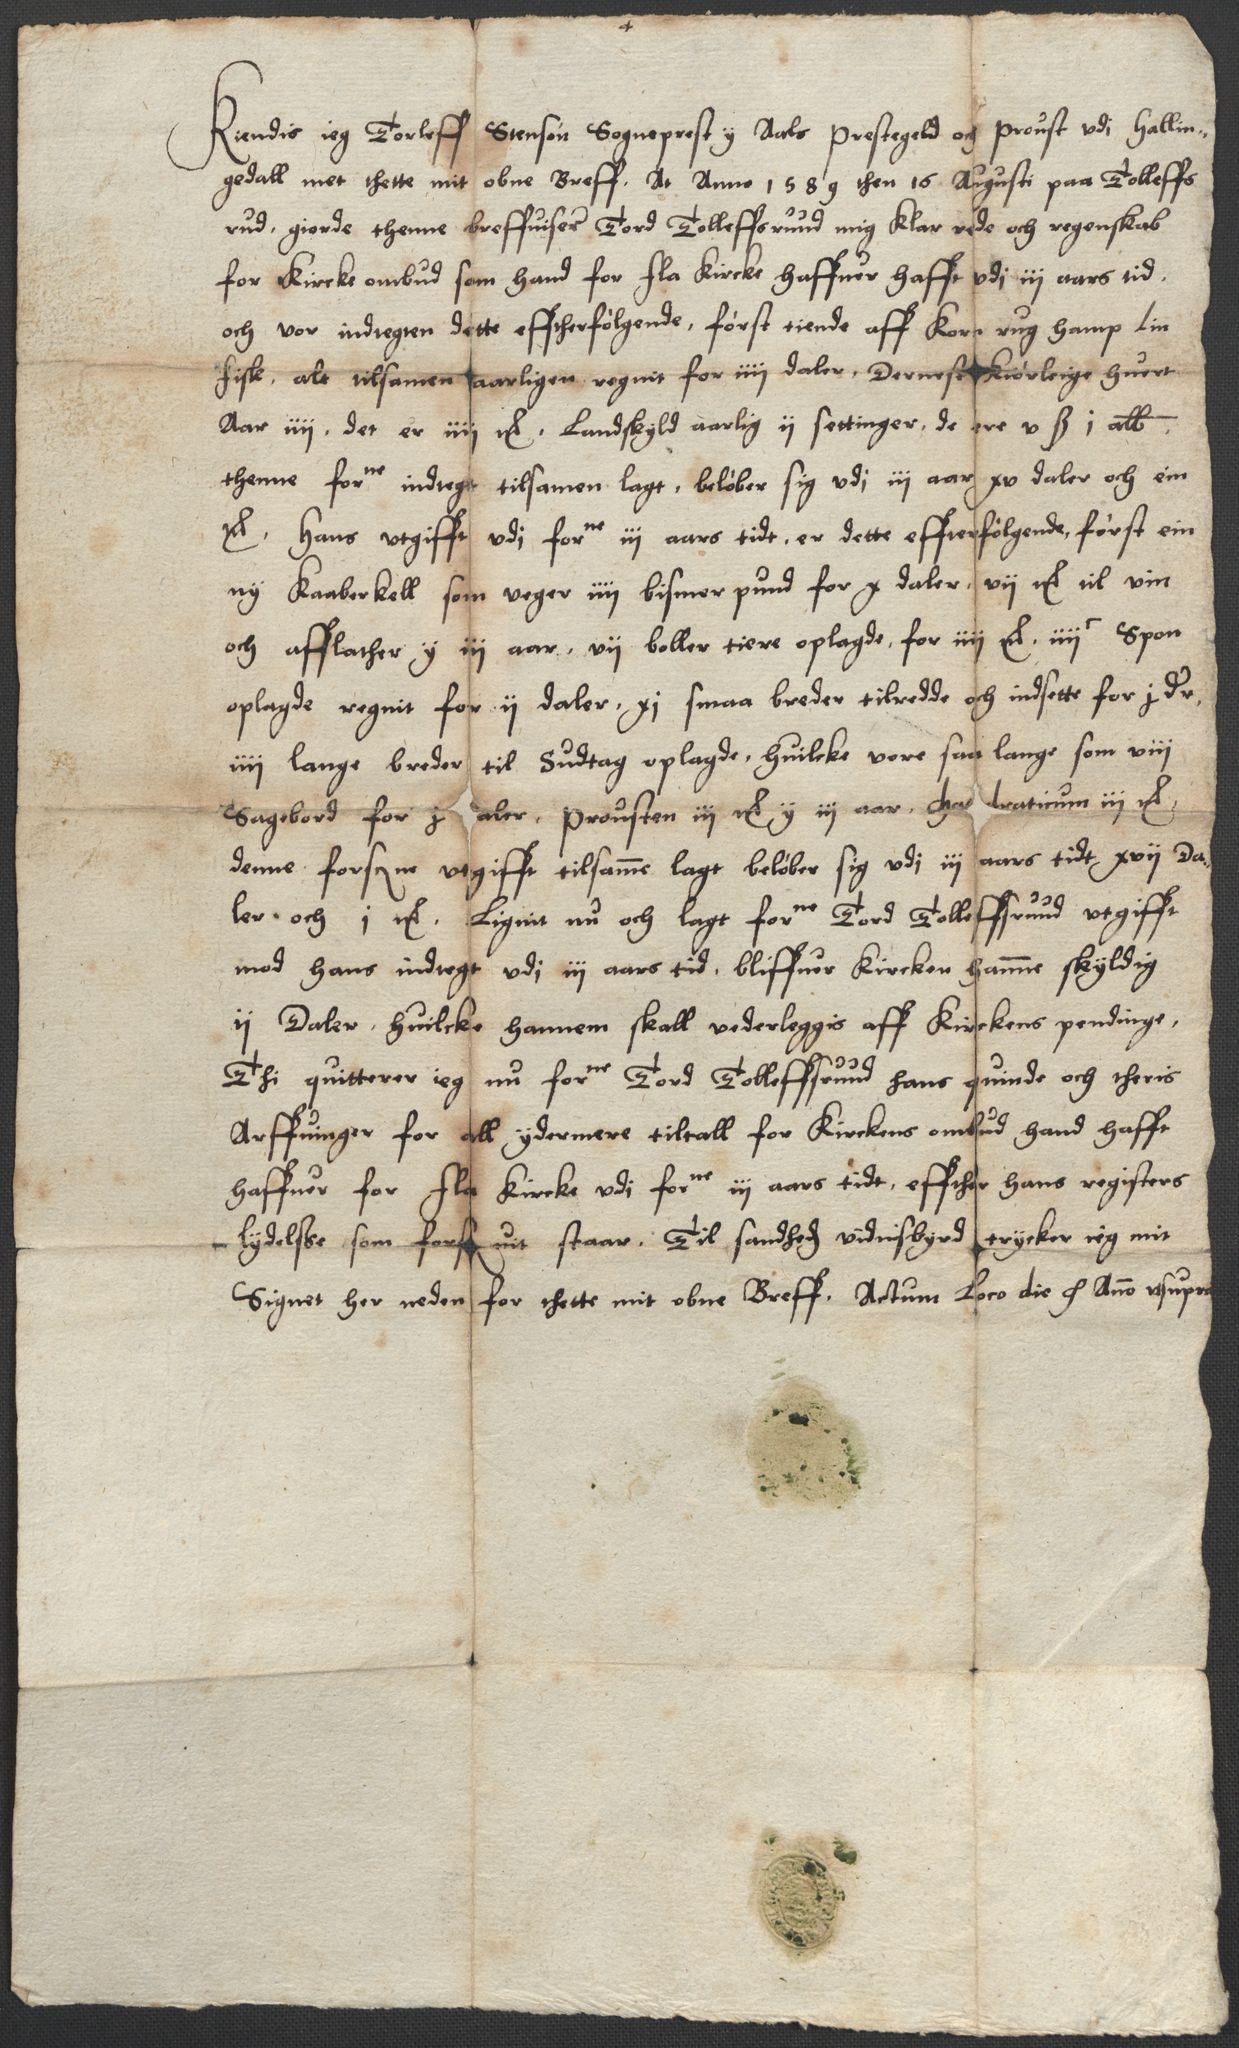 Kiendis ieg Torleff Stensøn Sogneprest y Aals Prestegeld och Proust vdj Hallin=
gedall met thette mit obne Breff. At Anno 1589 then 16 Augusti paa Tolleffs
rud. giorde thenne breffuiser Tord Tolleffsruud mig klar rede och regenskab
for Kircke ombud som hand for Fla Kircke haffuer hafft vdj iij aars tid.
och vor indtegten dette effther følgende, først tiende aff Korn rug hamp lin
fisk. alt tilsamen aarligen regnit for iiij daler. Dernest Kiørleige huert
Aar iiij. det er iiij Mk. Landskyld aarlig ij settinger. de ere v ß j alb.
thenne forne indtegt tilsamen lagt, beløber sig vdj iij aar xv daler och ein
Mk. Hans vtgifft vdj forne iij aars tidt. er dette effterfølgende, først ein
ny Kaaberkell som veger iiij bismer pund for x daler. vij Mk til vin
och afflather y iij aar. vij boller tiere oplagde, for iiij Mk. iiijc Spon
oplagde regnit for ij daler. xj smaa breder tilredde och indsette for j d'r.
iiij lange breder til Sudtag oplagde, huilcke vore saa lange som viij
Sagebord for j daler. Prousten iij Mk y iij aar. draticum iij Mk.
denne forsne vtgifft tilsamme lagt beløber sig vdj iij aars tidt xvij Da=
ler och j Mk. Lignit nu och lagt forne Tord Tolleffsruud vtgifft
mod hans indtegt vdj iij aars tid. bliffuer Kircken hamme skyldig
ij Daler. huilcke hannem skall vederleggis aff Kirckens pendinge.
Thi quitterer ieg nu forne Tord Tolleffsruud hans quinde och theris
Arffuinger for all ydermere tiltall for Kirckens ombud hand hafft
haffuer for Fla Kircke vdj forne iij aars tidt. effther hans registers
lydelsse som forskuit staar. Til sandhed vidnisbyrd trycker ieg mit
Signet her neden for thette mit obne Breff. Actum Loco die et Anno vtsupra